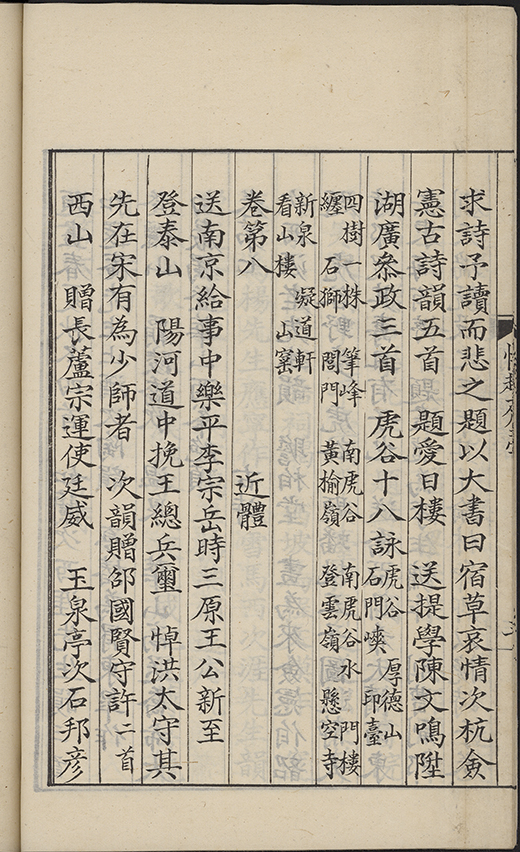 求詩予讀而悲之題以大書曰宿草哀情次杭僉
憲古詩韻五首 題愛日樓 送提學陳文鳴陞
湖廣叅政三首 虎谷十八詠 虎谷 厚德山 石門峽 印臺
四樹一株 筆峰 南虎谷 南虎谷水 門樓
纏石獅 閻門 黃榆嶺 登雲嶺 懸空寺
新泉 凝道軒
看山樓 山窰
卷第八
近體
送南京給事中樂平李宗岳時三原王公新至
登泰山 陽河道中挽王總兵璽 悼洪太守其
先在宋有為少師者 次韻贈邵國賢守許二首
西山 贈長蘆宗運使廷威 玉泉亭次石邦彦